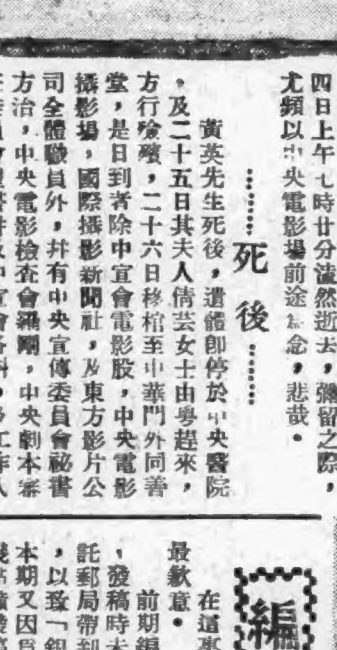 四日上午七時廿分溘然逝去,彌留之際,
尤頻以中央電影場前途為念,悲哉。
死後
黃英先生死後,遺體即停於中央醫院
,及二十五日其夫人倩芸女士由粤趕來,
方行殮殯,二十六日移棺至中華門外同善
堂,是日到者除中宣會電影股,中央電影
攝影場,國際攝影新聞社,及東方影片公
司全體職員外,幷有中央宣傳委員會祕書
方治,中央電影檢查會羅剛,中央劇本審
編
在這
最歉意。
前期編
,發稿時未
託郵局帶到
,以致「銀
本期又因